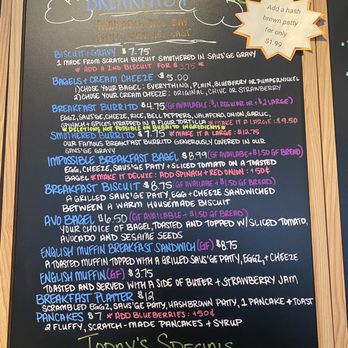 BREAKFAST
Add a hash
brown patty
for only
$1.99
BISCUIT + GRAVY $7.75
1 MADE FROM SCRATCH BISCUIT SMOTHERED IN SAUS'GE GRAVY
* ADD A 2ND BISCUIT FOR
BAGELS + CREAM CHEEZE $5.00
1) CHOSE YOUR BAGEL: EVERYTHING, PLAIN, BLUEBERRY OR PUMPERNICKEL
2) CHOSE YOUR CREAM CHEEZE: ORIGINAL, CHIVE OR STRAWBERRY
BREAKFAST BURRITO $4.75 (GF AVAILABLE $1 REGULAR OR $2 LARGE)
EGGZ, SAUS'GE, CHEEZE, RICE, BELL PEPPERS, JALAPENO, ONION, GARLIC,
SPINACH + SPICES WRAPPED IN A FLOUR TORTILLA * MAKE IT A LARGE: $9.50
* DELETIONS NOT POSSIBLE ON BURRITO INGREDIENTS *
SMOTHERED BURRITO $7.75 * MAKE IT A LARGE: $12.75
OUR FAMOUS BREAKFAST BURRITO GENEROUSLY COVERED IN OUR
SAUS'GE GRAVY
IMPOSSIBLE BREAKFAST BAGEL $8.99 (GF AVAILABLE + $1.50 GF BREAD)
EGG, CHEEZE, SAUS'GE PATTY + SLICED TOMATO ON A TOASTED
BAGEL * MAKE IT DELUXE: ADD SPINACH + RED ONION: + 50¢
BREAKFAST BISCUIT $8.75 (GF AVAILABLE + $1.50 GF BREAD)
A GRILLED SAUS'GE PATTY, EGG + CHEEZE SANDWICHED
BETWEEN A WARM HOUSEMADE BISCUIT
AVO BAGEL $6.50 (GF AVAILABLE + $1.50 GF BREAD)
YOUR CHOICE OF BAGEL TOASTED AND TOPPED W/ SLICED TOMATO,
AVOCADO AND SESAME SEEDS
ENGLISH MUFFIN BREAKFAST SANDWICH (GF) $8.75
A TOASTED MUFFIN TOPPED WITH A GRILLED SAUS'GE PATTY, EGGZ, + CHEEZE
ENGLISH MUFFIN (GF) $3.75
TOASTED AND SERVED WITH A SIDE OF BUTTER + STRAWBERRY JAM
BREAKFAST PLATTER $12
SCRAMBLED EGGZ, SAUS'GE PATTY, HASHBROWN PATTY, 1 PANCAKE + TOAST
PANCAKES $7 * ADD BLUEBERRIES: +50¢
2 FLUFFY, SCRATCH-MADE PANCAKES + SYRUP
TODAY'S SPECIALS